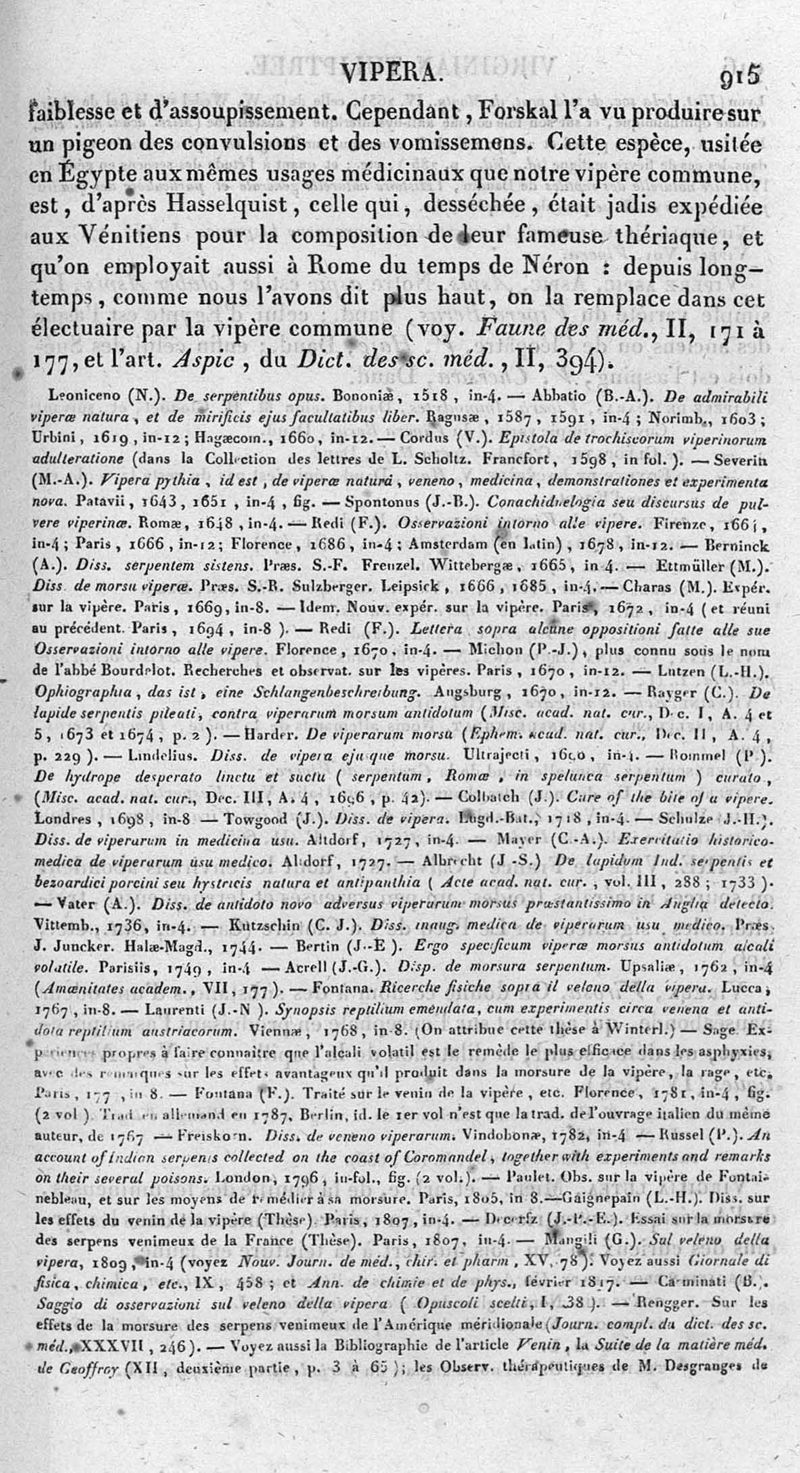 VIPERA. 915
faiblesse et d'assoupissement. Cependant, Forskal l'a vu produire sur
un pigeon des convulsions et des vomissemens. Cette espèce, usitée
en Égypte aux mêmes usages médicinaux que notre vipère commune,
est, d'après Hasselquist, celle qui, desséchée, était jadis expédiée
aux Vénitiens pour la composition de leur fameuse thériaque, et
qu'on employait aussi à Rome du temps de Néron : depuis long-
temps, comme nous l'avons dit plus haut, on la remplace dans cet
électuaire par la vipère commune (voy. Faune des méd., II, 171 à
177, et l'art. Aspic, du Dict. des sc. méd., II, 394).
Leoniceno (N.). De serpentibus opus. Bononiæ, 1518, in-4. — Abbatio (B.-A.). De admirabili
viperæ natura, et de mirificis ejus facultatibus liber. Ragusæ, 1587, 1591, in-4 ; Norimb., 1603 ;
Urbini, 1619, in-12 ; Hagæcom., 1660, in-12. — Cordus (V.). Epistola de trochiscorum viperinorum
adulteratione (dans la Collection des lettres de L. Scholtz. Francfort, 1598, in fol.). — Severin
(M.-A.). Vipera pythia, id est, de viperæ naturá, veneno, medicina, demonstrationes et experimenta
nova. Patavii, 1643, 1651, in-4, fig. — Spontonus (J.-B.). Conachidnelogia seu discursus de pul-
vere viperinæ. Romæ, 1648, in-4. — Redi (F.). Osservazioni intorno alle vipere. Firenze, 1664,
in-4 ; Paris, 1666, in-12 ; Florence, 1686, in-4 ; Amsterdam (en latin), 1678, in-12. — Berninck
(A.). Diss. serpentem sistens. Præs. S.-F. Frenzel. Wittebergæ, 1665, in 4. — Ettmüller (M.).
Diss de morsu viperæ. Præs. S.-R. Sulzberger. Leipsick, 1666, 1685, in-4. — Charas (M.). Expér.
sur la vipère. Paris, 1669, in-8. — Idem. Nouv. expér. sur la vipère. Paris, 1672, in-4 (et réuni
au précédent. Paris, 1694, in-8). — Redi (F.). Lettera sopra alcune oppositioni fatte alle sue
Osservazioni intorno alle vipere. Florence, 1670, in-4. — Michon (P.-J.), plus connu sous le nom
de l'abbé Bourdelot. Recherches et observat. sur les vipères. Paris, 1670, in-12. — Lutzen (L.-H.).
Ophiographia, das ist, eine Schlangenbeschreibung. Augsburg, 1670, in-12. — Rayger (C.). De
lapide serpentis pileati, contra viperarum morsum antidotum (Misc. acad. nat. cur., Dec. I, A. 4 et
5, 1673 et 1674, p. 2). — Harder. De viperarum morsu (Ephem. acad. nat. cur., Dec. II, A. 4,
p. 229). — Lindelius. Diss. de vipera ejusque morsu. Ultrajecti, in-4. — Rommel (P.).
De hydrope desperato linctu et suctu (serpentum, Romæ, in spelunca serpentum) curato,
(Misc. acad. nat. cur., Dec. III, A. 4, 1696, p. 42). — Colbatch (J.). Cure of the bite of a vipere.
Londres, 1698, in-8 — Towgood (J.). Diss. de vipera. Lugd.-Bat., 1718, in-4. — Schulze J.-H.).
Diss. de viperarum in medicina usu. Altdorf, 1727, in-4. — Mayer (C.-A.). Exercitatio historico-
medica de viperarum usu medico. Altdorf, 1727. — Albrecht (J -S.) De lapidum Ind. serpentis et
bezoardici porcini seu hystricis natura et antipanthia (Acte acad. nat. cur., vol. III, 288 ; 1733).
— Vater (A.). Diss. de antidoto novo adversus viperarum morsus præstantissimo in Anglia detecto.
Vittemb., 1736, in-4. — Kutzschin (C. J.). Diss. inaug. medica de viperarum usu medico. Præs.
J. Juncker. Halæ-Magd., 1744. — Bertin (J.-E). Ergo specificum viperæ morsus antidotum alcali
volatile. Parisiis, 1749, in-4 — Acrell (J.-G.). Disp. de morsura serpentum. Upsaliæ, 1762, in-4
(Amænitates academ., VII, 177). — Fontana. Ricerche fisiche sopra il veleno della vipera. Lucca,
1767, in-8. — Laurenti (J.-N). Synopsis reptilium emendata, cum experimentis circa venena et anti-
dota reptilium austriacorum. Viennæ, 1768, in-8. (On attribue cette thèse à Winterl.) — Sage. Ex-
périences propres à faire connaître que l'alcali volatil est le remède le plus efficace dans les asphyxies,
avec des remarques sur les effets avantageux qu'il produit dans la morsure de la vipère, la rage, etc.
Paris, 177 , in 8. — Fontana (F.). Traité sur le venin de la vipère, etc. Florence, 1781, in-4, fig.
(2 vol). Trad. en allemand en 1787, Berlin, id. le 1er vol n'est que la trad. de l'ouvrage italien du même
auteur, de 1767 — Freiskorn. Diss. de veneno viperarum. Vindobonæ, 1782, in-4 — Russel (P.). An
account of indian serpents collected on the coast of Coromandel, together with experiments and remarks
on their several poisons. London, 1796, in-fol., fig. (2 vol.). — Paulet. Obs. sur la vipère de Fontai-
nebleau, et sur les moyens de remédier à sa morsure. Paris, 1805, in 8. — Gaignepain (L.-H.). Diss. sur
les effets du venin de la vipère (Thèse). Paris, 1807, in-4. — (J.-P.-E.). Essai sur la morsure
des serpens venimeux de la France (Thèse). Paris, 1807, in-4. — Mangili (G.). Sul veleno della
vipera, 1809, in-4 (voyez Nouv. Journ. de méd., chir. et pharm, XV, 78). Voyez aussi Giornale di
fisica, chimica, etc., IX, 458 ; et Ann. de chimie et de phys., février 1817. — Carminati (B.).
Saggio di osservazioni sul veleno della vipera (Opuscoli scelti, I, 38). — Rengger. Sur les
effets de la morsure des serpens venimeux de l'Amérique méridionale (Journ. compl. du dict. des sc.
méd., XXXVII, 246). — Voyez aussi la Bibliographie de l'article Venin, la Suite de la matière méd.
de Geoffroy (XII, deuxième partie, p. 3 à 65) ; les Observ. thérapeutiques de M. Desgranges de